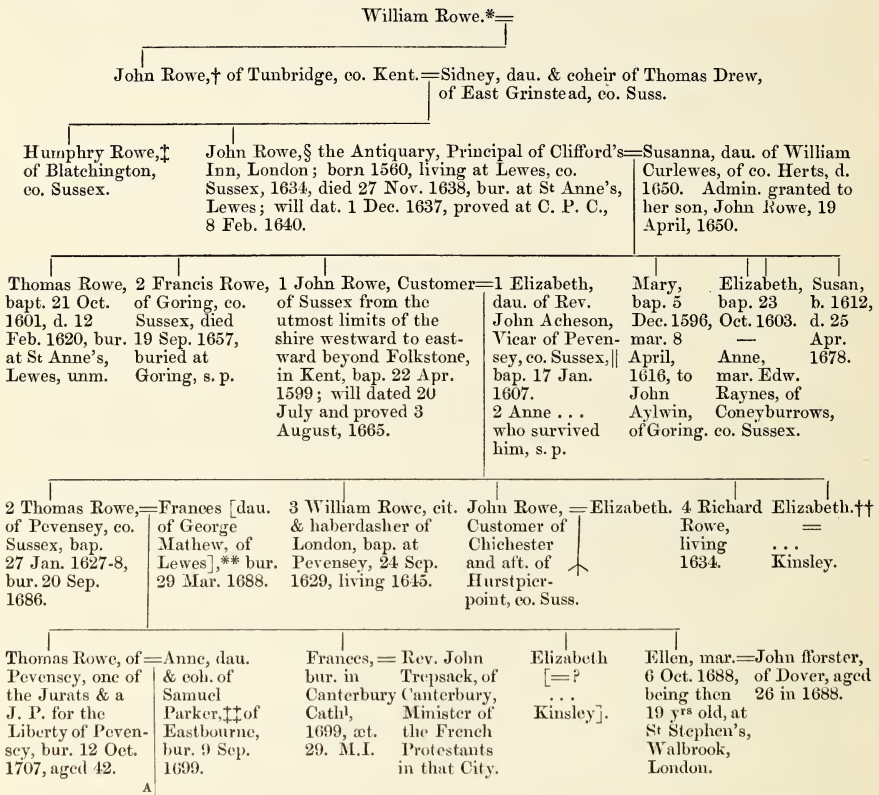 William Rowe.*=
John Rowe,† of Tunbridge, co. Kent.=Sidney, dau. & coheir of Thomas Drew,
of East Grinstead, co. Suss.
Humphry Rowe,‡
of Blatchington,
co. Sussex.
John Rowe,§ the Antiquary, Principal of Clifford's=
Inn, London; born 1560, living at Lewes, co.
Sussex, 1634, died 27 Nov. 1638, bur. at St Anne's,
Lewes; will dat. 1 Dec. 1637, proved at C. P. C.,
8 Feb. 1640.
Susanna, dau. of William
Curlewes, of co. Herts, d.
1650. Admin. granted to
her son, John Rowe, 19
April, 1650.
Thomas Rowe,
bapt. 21 Oct.
1601, d. 12
Feb. 1620, bur.
at St Anne's,
Lewes, unm.
2 Francis Rowe,
of Goring, co.
Sussex, died
19 Sep. 1657,
buried at
Goring, s. p.
1 John Rowe, Customer=
of Sussex from the
utmost limits of the
shire westward to east-
ward beyond Folkstone,
in Kent, bap. 22 Apr.
1599; will dated 20
July and proved 3
August, 1665.
1 Elizabeth,
dau. of Rev.
John Acheson,
Vicar of Peven-
sey, co. Sussex,||
bap. 17 Jan.
1607.
2 Anne . . .
who survived
him, s. p.
Mary,
bap. 5
Dec. 1596,
mar. 8
April,
1616, to
John
Aylwin,
of Goring.
Elizabeth,
bap. 23
Oct. 1603.
—
Anne,
mar. Edw.
Raynes, of
Coneyburrows,
co. Sussex.
Susan,
b. 1612,
d. 25
Apr.
1678.
2 Thomas Rowe,=
of Pevensey, co.
Sussex, bap.
27 Jan. 1627-8,
bur. 20 Sep.
1686.
Frances [dau.
of George
Mathew, of
Lewes],** bur.
29 Mar. 1688.
3 William Rowe, cit.
& haberdasher of
London, bap. at
Pevensey, 24 Sep.
1629, living 1645.
John Rowe, =
Customer of
Chichester
and aft. of
Hurstpier-
point, co. Suss.
Elizabeth.
4 Richard
Rowe,
living
1634.
Elizabeth.††
=
. . .
Kinsley.
Thomas Rowe, of=
Pevensey, one of
the Jurats & a
J. P. for the
Liberty of Peven-
sey, bur. 12 Oct.
1707, aged 42.
Anne, dau.
& coh. of
Samuel
Parker,‡‡of
Eastbourne,
bur. 9 Sep.
1699.
Frances, =
bur. in
Canterbury
Cathˡ,
1699, æt.
29. M.I.
Rev. John
Trepsack, of
Canterbury,
Minister of
the French
Protestants
in that City.
Elizabeth
[=?
. . .
Kinsley].
Ellen, mar.=
6 Oct. 1688,
being then
19 yʳˢ old, at
St Stephen's,
Walbrook,
London.
John fforster,
of Dover, aged
26 in 1688.
A